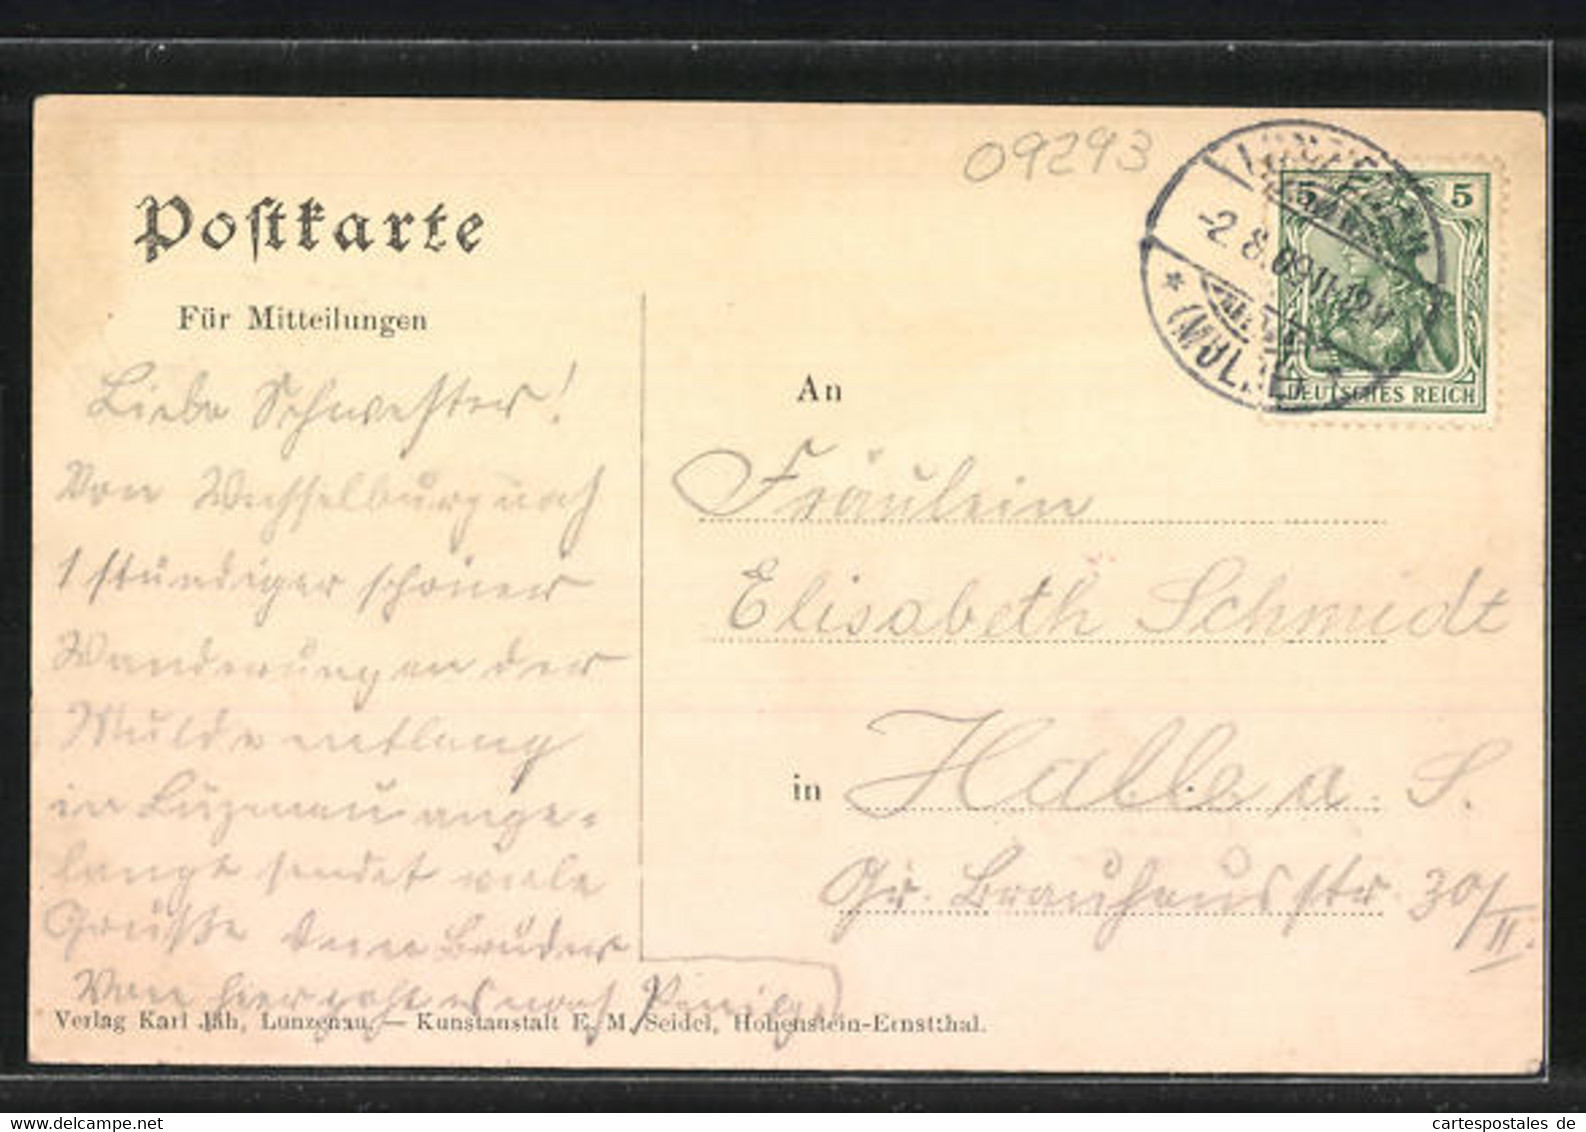 09293
Postkarte
Für Mitteilungen
Liebe Schwester!
Von Wechselburg nach
1 stündiger schöner
Wanderung an der
Mulde entlang
in Lunzenau ange-
langt sendet viele
Grüße Dein Bruder
Von hier geht es nach Penig.
An
Fräulein
Elisabeth Schmidt
in Halle a. S.
Gr. Brauhausstr 30/II.
LUNZENAU
-2 8.09.11-12V
* (MULDE)
5 5
DEUTSCHES REICH
Verlag Karl Jäh, Lunzenau. — Kunstanstalt E. M. Seidel, Hohenstein-Ernstthal.
cartespostales de